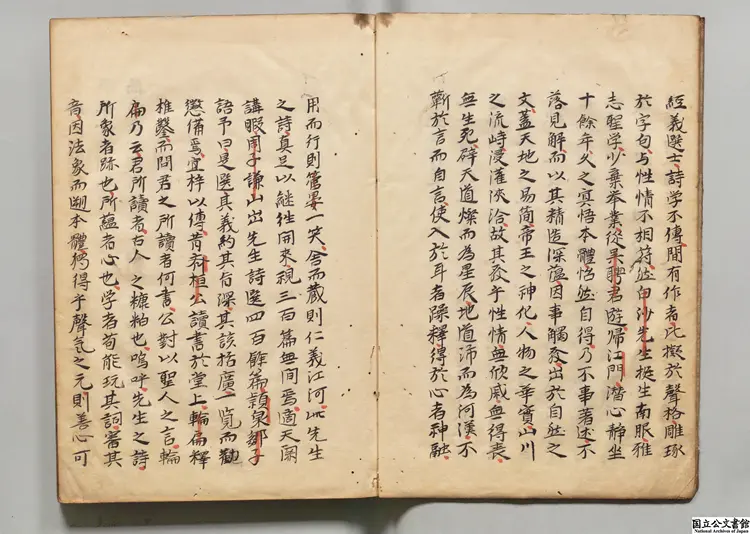 經義選士詩学不傳間有作者比擬於聲格雕琢
於字句与性情不相符然白沙先生挺生南服雅
志聖学少棄举業從吴聘君遊歸江門潛心靜坐
十餘年久之宜悟本體怡然自得乃不事著述不
落見解而以其精造深蘊因事觸發出於自然之
文蓋天地之易简帝王之神化人物之華實山川
之流峙浸灌浹洽故其發乎性情無欣戚無得喪
無生死辟天道燦而為星辰地道沛而為河漢不
蘄於言而自言使入於耳者躁釋得於心者神融
用而行則管晏一笑舎而藏則仁義江河此先生
之詩真足以継徃開来視三百篇無間焉適天闕
講暇周子謙山出先生詩選四百餘篇頴泉鄒子
語予曰是選其義約其旨深其該括廣一覧而勧
懲備焉宜梓以傳昔斉桓公讀書於堂上輪扁釋
椎鑿而問君之所讀者何書公對以聖人之言輪
扁乃云君所讀者古人之糠粕也嗚呼先生之詩
所象者跡也所蘊者心也学者苟能玩其詞審其
音因法象而遡本體獨得乎聲氣之元則善心可
国立公文書館
National Archives of Japan